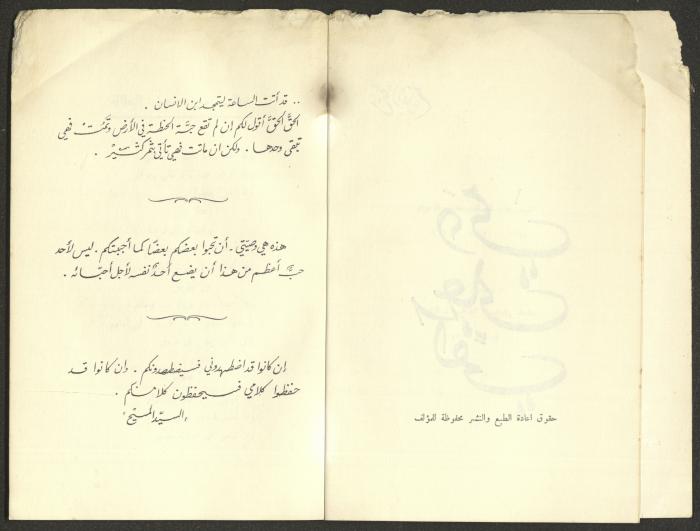 حقوق اعادة الطبع والنشر محفوظة للمؤلف
.. قد أتت الساعة ليتمجد ابن الانسان .
الحقَّ الحقَّ أقول لكم ان لم تقع حبّة الحنطة في الأرض وتمُتْ فهي
تبقى وحدها . ولكن ان ماتت فهي تأتي بثمر كثيرٍ .
هذه هي وصيّتي . أن تحبوا بعضكم بعضًا كما أحببتكم . ليس لأحد
حبٌّ أعظم من هذا أن يضع أحدٌ نفسه لأجل أحبّائه .
إن كانوا قد اضطهدوني فسيضطهدونكم . وان كانوا قد
حفظوا كلامي فسيحفظون كلامكم .
"السيّد المسيح"